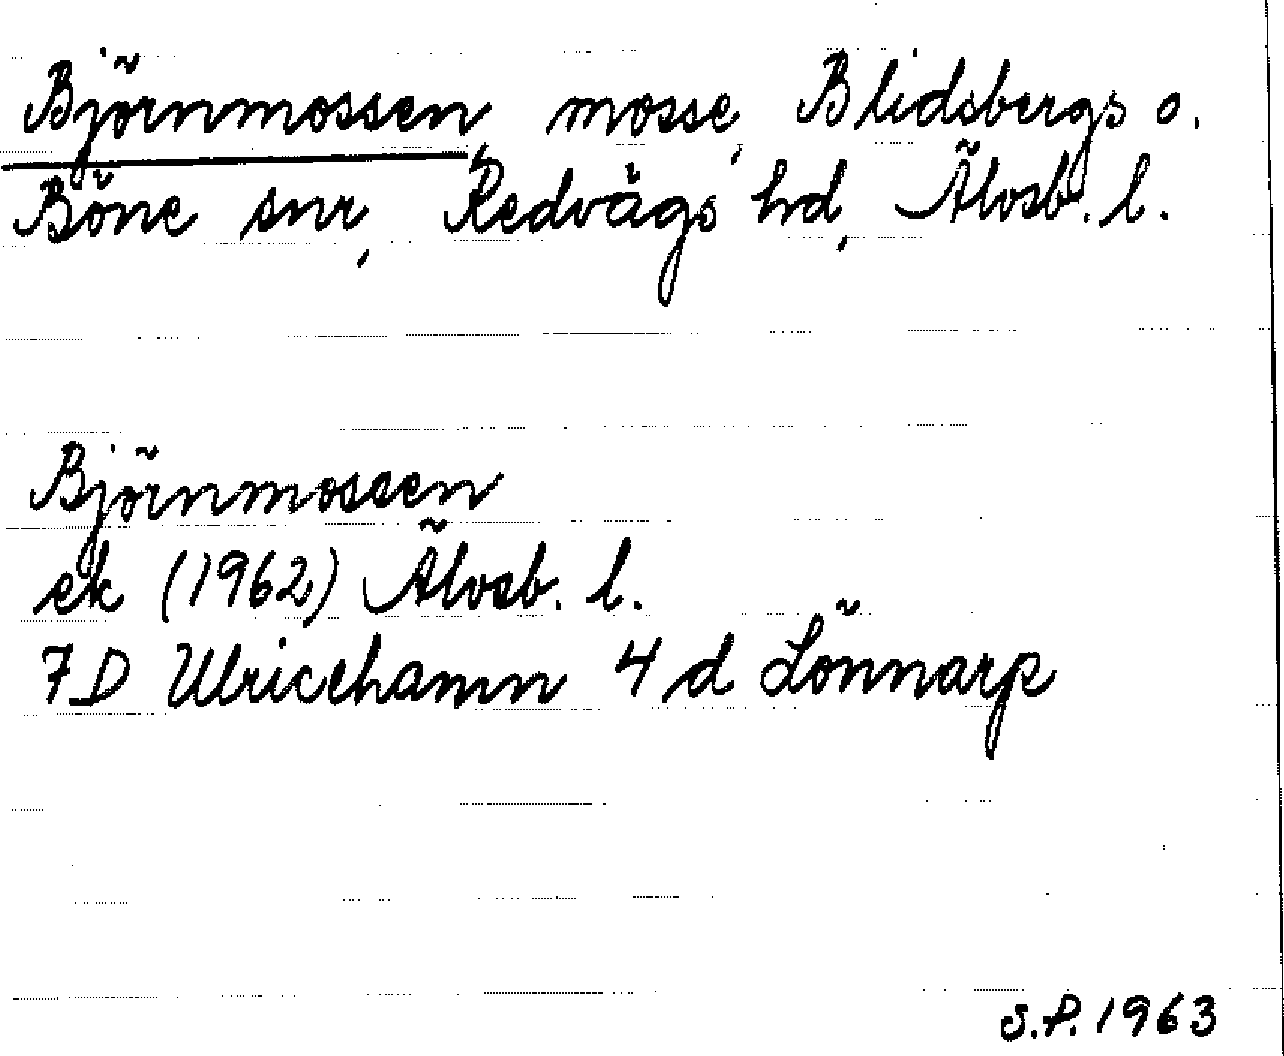 Björnmossen, mosse, Blidsbergs o.
Böne snr, Redvägs hd, Älvsb. l.
Björnmossen
ek (1962) Älvsb. l.
7D Ulricehamn 4 d Lönnarp
S.P. 1963